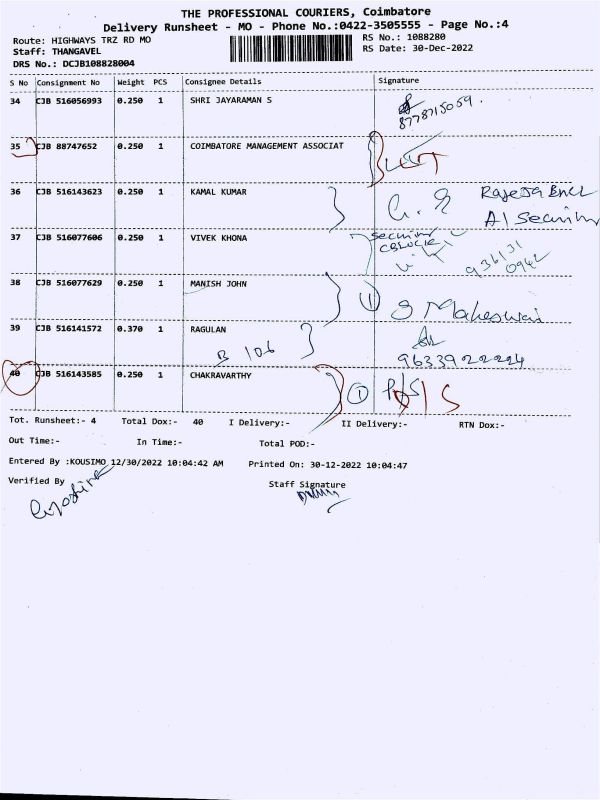 THE PROFESSIONAL COURIERS, Coimbatore
Delivery Runsheet - MO - Phone No.:0422-3505555 - Page No.:4
Route: HIGHWAYS TRZ RD MO RS No.: 1088280
Staff: THANGAVEL RS Date: 30-Dec-2022
DRS No.: DCJB108828004
S No Consignment No Weight PCS Consignee Details Signature
34 CJB 516056993 0.250 1 SHRI JAYARAMAN S
8778715059.
35 CJB 88747652 0.250 1 COIMBATORE MANAGEMENT ASSOCIAT
36 CJB 516143623 0.250 1 KAMAL KUMAR
A1 Security
37 CJB 516077606 0.250 1 VIVEK KHONA
Security
C BLOCK
93631
0942
38 CJB 516077629 0.250 1 MANISH JOHN
1 S Maheswari
39 CJB 516141572 0.370 1 RAGULAN
B 106
9633922224
40 CJB 516143585 0.250 1 CHAKRAVARTHY
1
Tot. Runsheet:- 4 Total Dox:- 40 I Delivery:- II Delivery:- RTN Dox:-
Out Time:- In Time:- Total POD:-
Entered By :KOUSIMO 12/30/2022 10:04:42 AM Printed On: 30-12-2022 10:04:47
Verified By Staff Signature